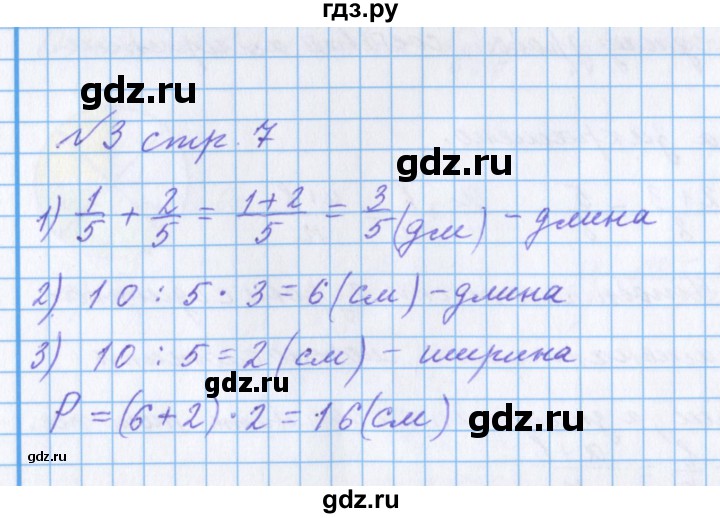 гдз.ру
gdz.ru
gdz.ru
№3 стр. 7
1) 1/5 + 2/5 = 1+2/5 = 3/5 (дм) - длина
2) 10 : 5 · 3 = 6 (см) - длина
3) 10 : 5 = 2 (см) - ширина
gdz.ru
P = (6+2) · 2 = 16 (см)
gdz.ru
gdz.ru
gdz.ru
gdz.ru